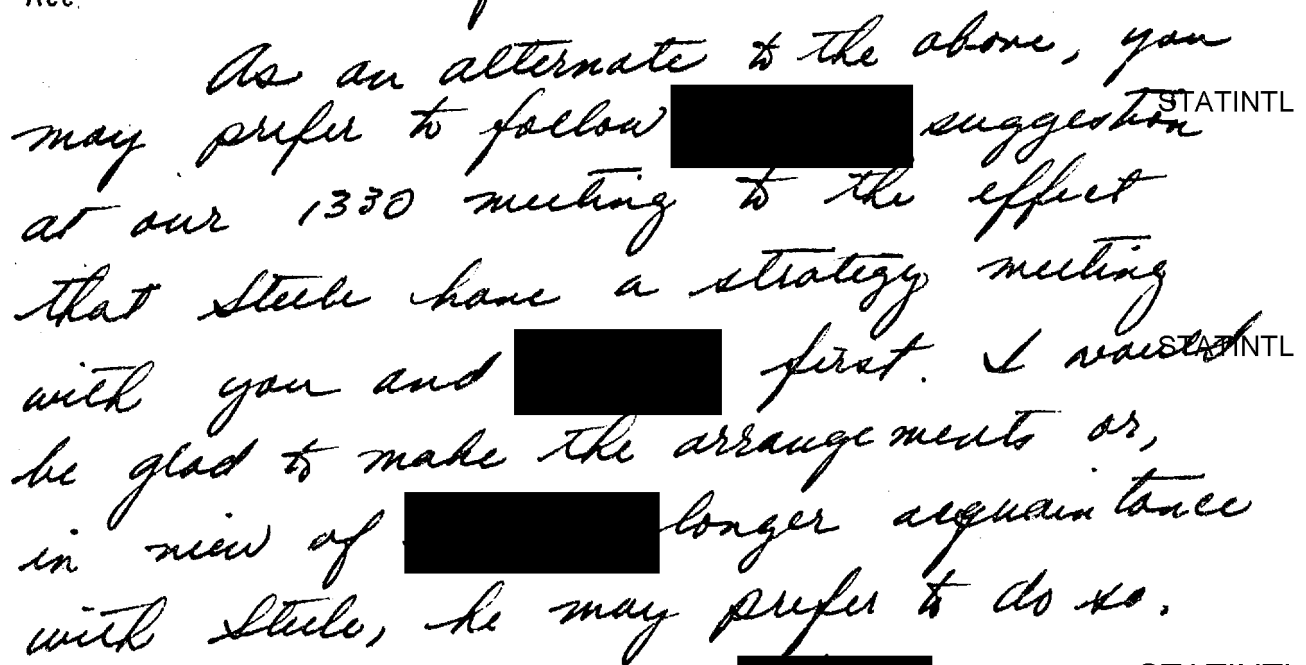 As an alternate to the above, you
may prefer to follow suggestion STATINTL
at our 1330 meeting to the effect
that Steele have a strategy meeting
with you and first. I would STATINTL
be glad to make the arrangements or,
in view of longer acquaintance
with Steele, he may prefer to do so.
STATINTL